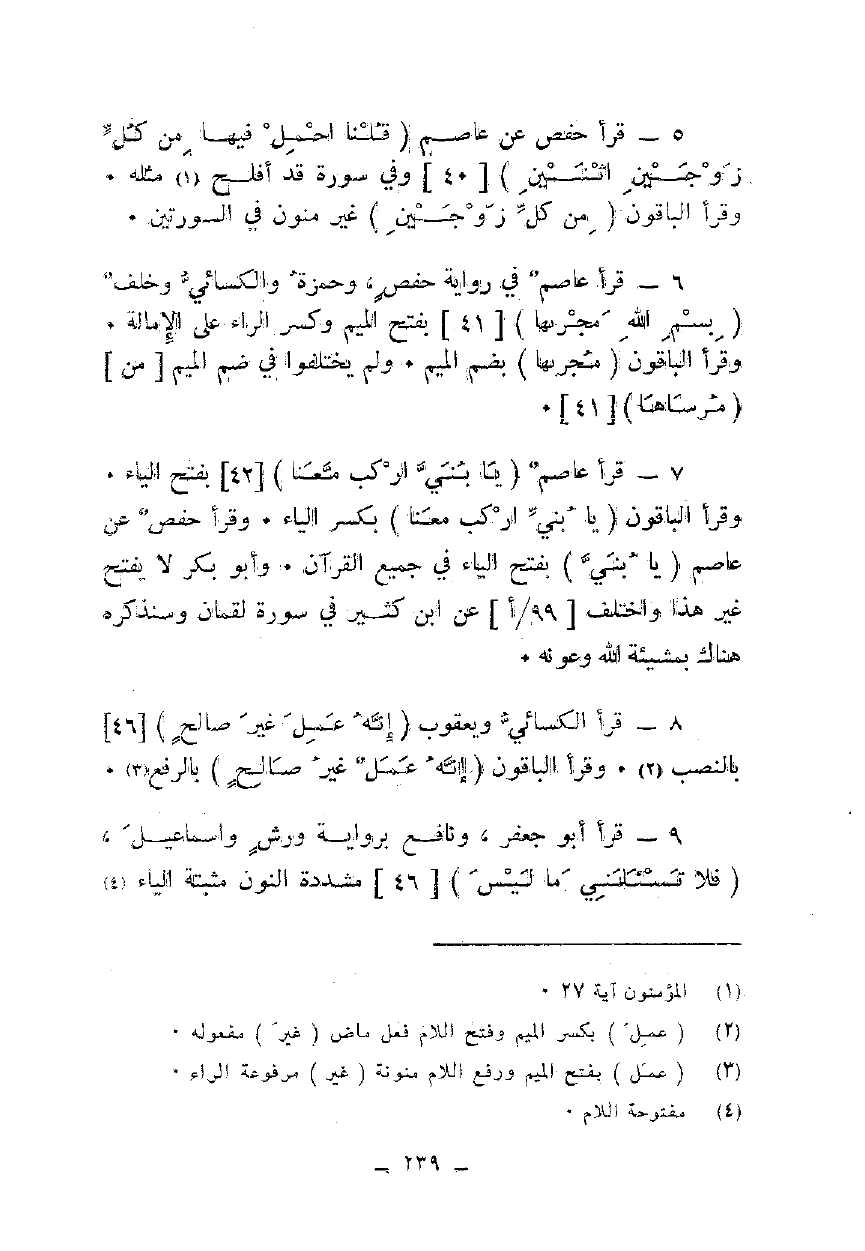 ٥ ــ قرأ حفص عن عاصم ( قُلْنا احْمِلْ فيها مِن كُلٍّ
زَوْجَيْنِ اثْنَيْنِ ) [ ٤٠ ] وفي سورة قد أفلح (١) مثله ٠
وقرأ الباقون ( مِن كلِّ زَوْجَيْنِ ) غير منون في السورتين ٠
٦ ــ قرأ عاصمٌ في رواية حفصٍ، وحمزةُ والكسائيُّ وخلفٌ
( بِسْمِ اللهِ مَجْريها ) [ ٤١ ] بفتح الميم وكسر الراء على الإمالة ٠
وقرأ الباقون ( مُجريها ) بضم الميم ٠ ولم يختلفوا في ضم الميم [ من ]
( مُرساها ) [ ٤١ ] ٠
٧ ــ قرأ عاصمٌ ( يَا بُنَيَّ ارْكب مَّعَنا ) [٤٢] بفتح الياء ٠
وقرأ الباقون ( يا بُنيِّ ارْكب معَنا ) بكسر الياء ٠ وقرأ حفصٌ عن
عاصم ( يا بُنَيَّ ) بفتح الياء في جميع القرآن ٠ وأبو بكر لا يفتح
غير هذا واختلف [ ٩٩/أ ] عن ابن كثير في سورة لقمان وسنذكره
هناك بمشيئة الله وعونه ٠
٨ ــ قرأ الكسائيُّ ويعقوب ( إنَّهُ عَمِلَ غيرَ صالحٍ ) [٤٦]
بالنصب (٢) ٠ وقرأ الباقون ( إنَّهُ عَمَلٌ غيرُ صَالحٍ ) بالرفع(٣) ٠
٩ ــ قرأ أبو جعفر ، ونافع برواية ورشٍ واسماعيلَ ،
( فلا تَسْئَلَنِّي مَا لَيْسَ ) [ ٤٦ ] مشددة النون مثبتة الياء (٤)
(١) المؤمنون آية ٢٧ ٠
(٢) ( عمِلَ ) بكسر الميم وفتح اللام فعل ماض ( غيرَ ) مفعوله ٠
(٣) ( عمَل ) بفتح الميم ورفع اللام منونة ( غير ) مرفوعة الراء ٠
(٤) مفتوحة اللام ٠
ــ ٢٣٩ ــ